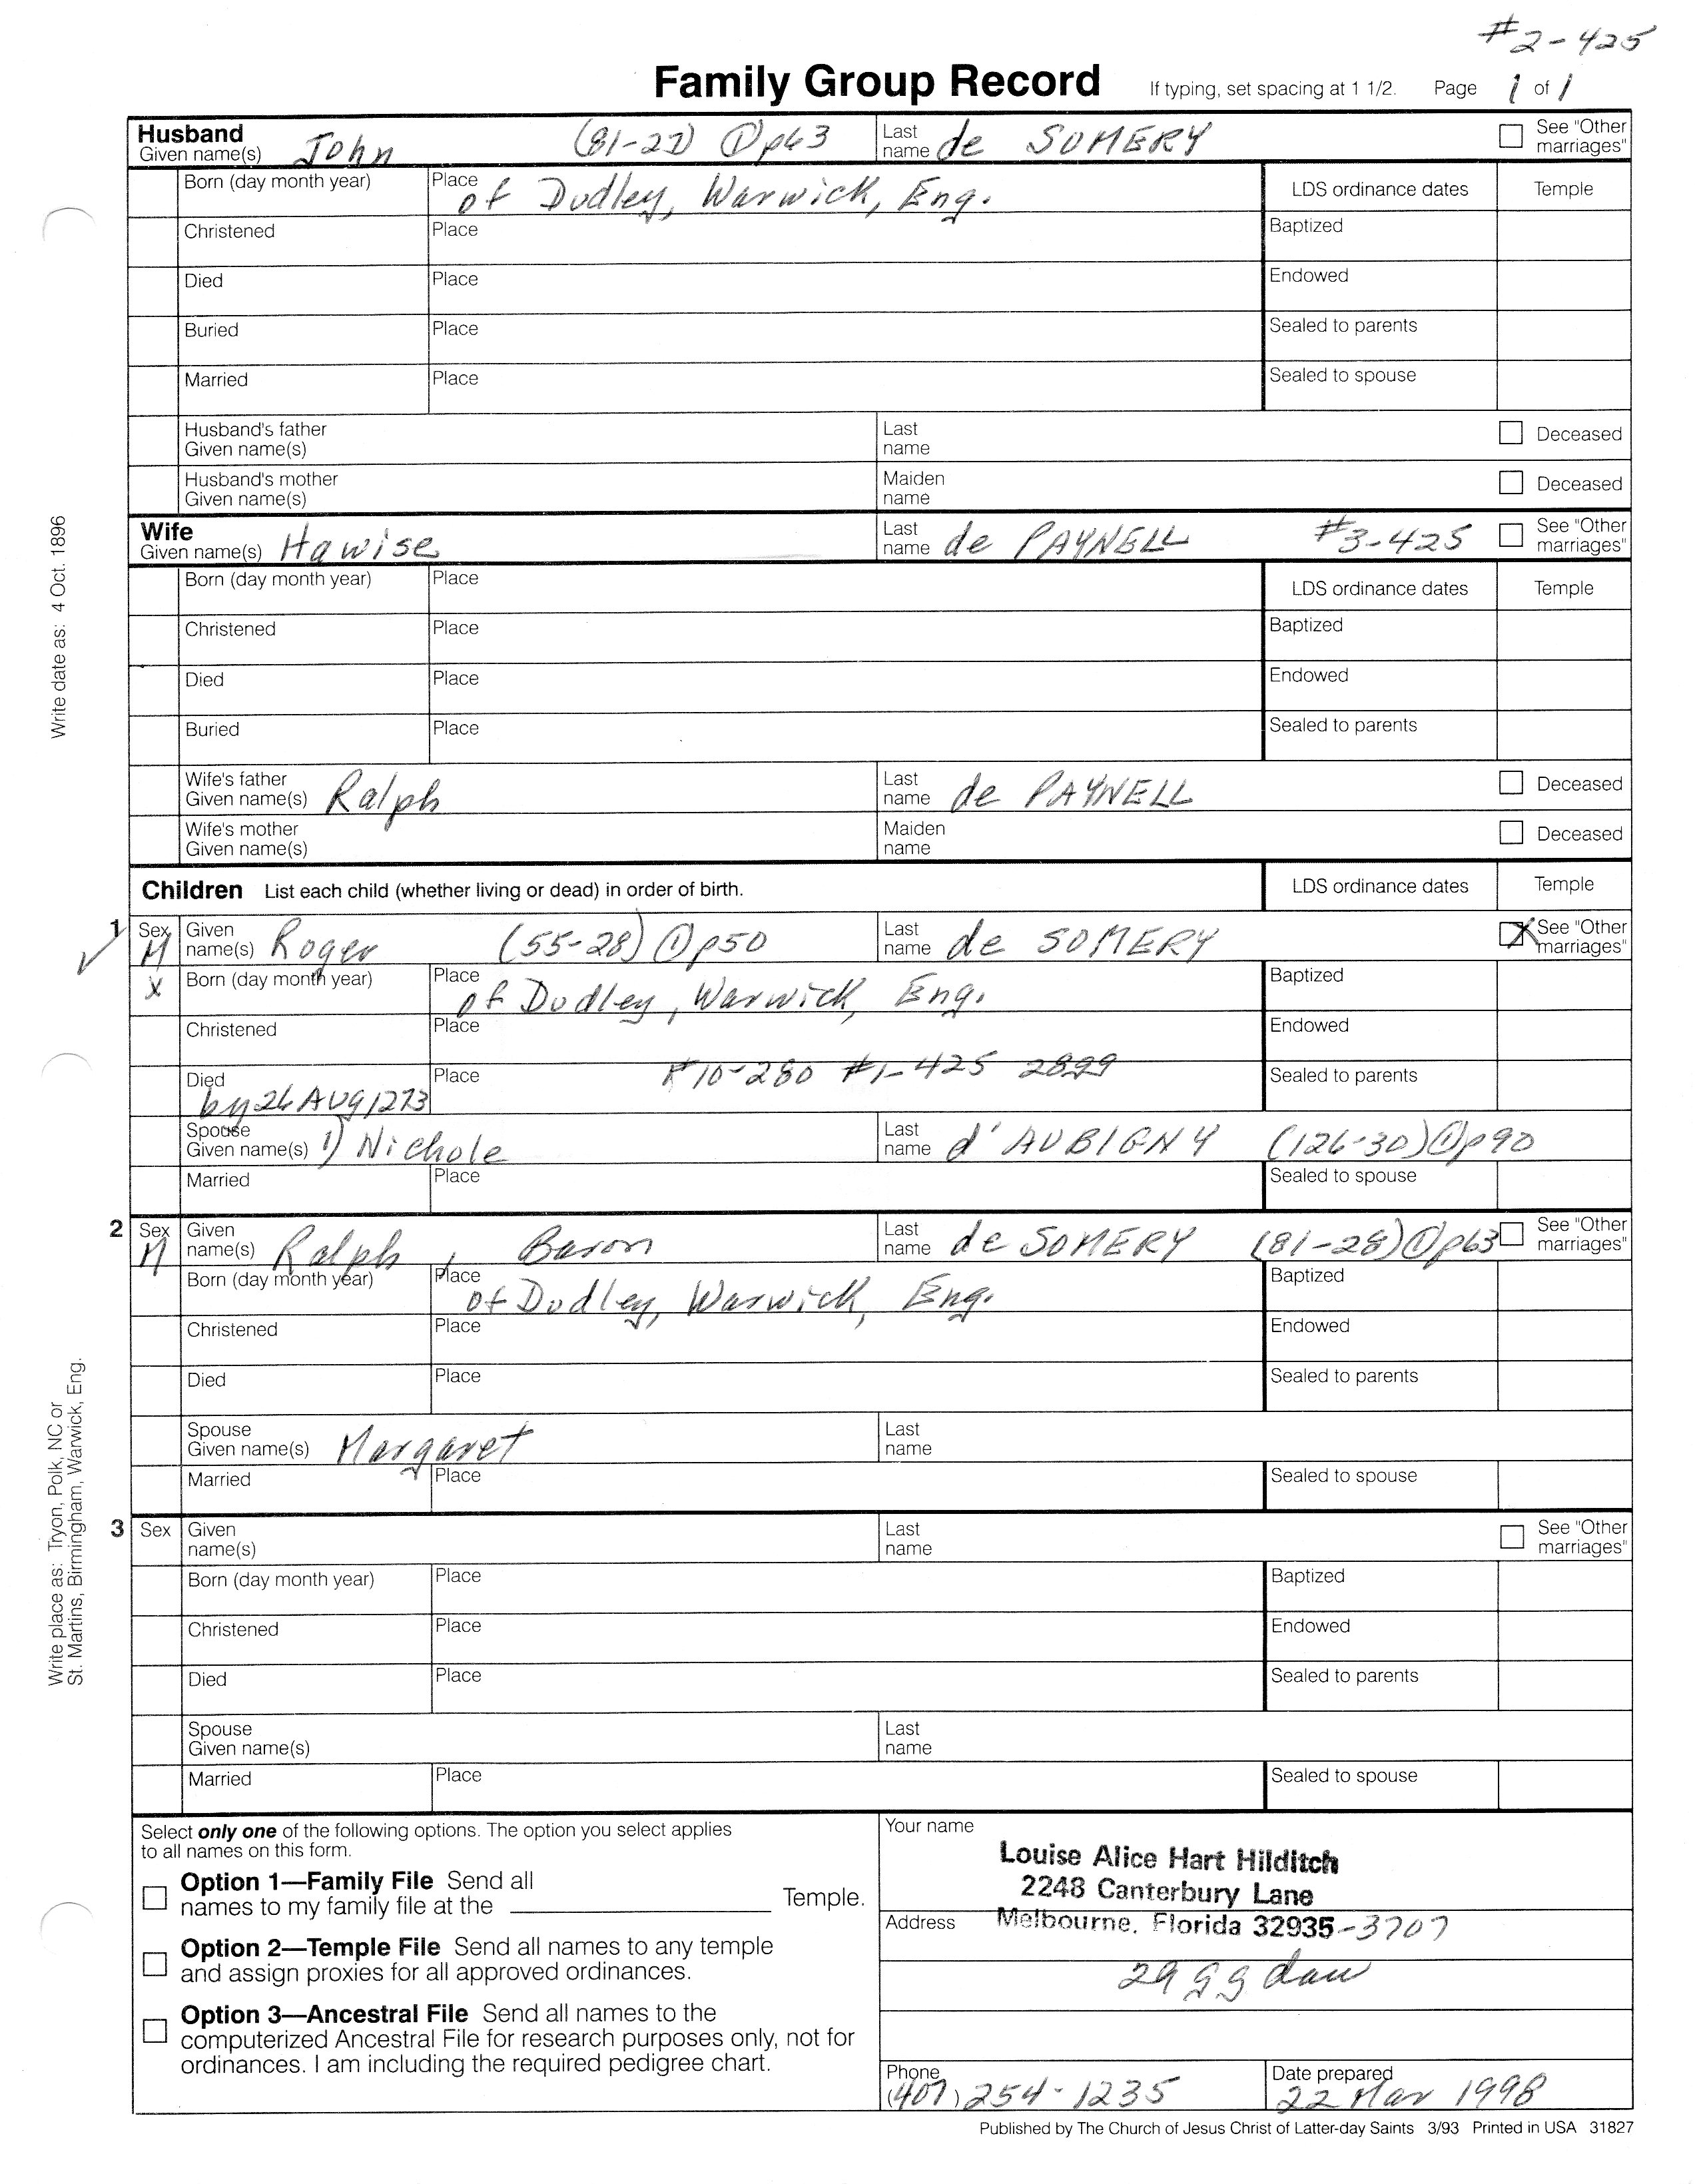 #2-425
Family Group Record If typing, set spacing at 1 1/2. Page 1 of 1
Husband
Given name(s) John (81-27) ① p63 Last name de SOMERY See "Other marriages"
Born (day month year) Place of Dudley, Warwick, Eng. LDS ordinance dates Temple
Christened Place Baptized
Died Place Endowed
Buried Place Sealed to parents
Married Place Sealed to spouse
Husband's father Given name(s) Last name Deceased
Husband's mother Given name(s) Maiden name Deceased
Wife
Given name(s) Hawise Last name de PAYNELL #3-425 See "Other marriages"
Born (day month year) Place LDS ordinance dates Temple
Christened Place Baptized
Died Place Endowed
Buried Place Sealed to parents
Wife's father Given name(s) Ralph Last name de PAYNELL Deceased
Wife's mother Given name(s) Maiden name Deceased
Children List each child (whether living or dead) in order of birth. LDS ordinance dates Temple
1 Sex M Given name(s) Roger (55-28) ① p50 Last name de SOMERY X See "Other marriages"
X Born (day month year) Place of Dudley, Warwick, Eng. Baptized
Christened Place Endowed
Died by 26 AUG 1273 Place #10-280 #1-425 2899 Sealed to parents
Spouse Given name(s) 1) Nichole Last name d'AUBIGNY (126-30) ① p90
Married Place Sealed to spouse
2 Sex M Given name(s) Ralph, Baron Last name de SOMERY (81-28) ① p63 See "Other marriages"
Born (day month year) Place of Dudley, Warwick, Eng. Baptized
Christened Place Endowed
Died Place Sealed to parents
Spouse Given name(s) Margaret Last name
Married Place Sealed to spouse
3 Sex Given name(s) Last name See "Other marriages"
Born (day month year) Place Baptized
Christened Place Endowed
Died Place Sealed to parents
Spouse Given name(s) Last name
Married Place Sealed to spouse
Select only one of the following options. The option you select applies
to all names on this form.
Option 1—Family File Send all
names to my family file at the Temple.
Option 2—Temple File Send all names to any temple
and assign proxies for all approved ordinances.
Option 3—Ancestral File Send all names to the
computerized Ancestral File for research purposes only, not for
ordinances. I am including the required pedigree chart.
Your name
Louise Alice Hart Hilditch
2248 Canterbury Lane
Address Melbourne, Florida 32935-3707
29 gg dau
Phone (407) 254-1235
Date prepared 22 Mar 1998
Published by The Church of Jesus Christ of Latter-day Saints 3/93 Printed in USA 31827
Write date as: 4 Oct. 1896
Write place as: Tryon, Polk, NC or
St. Martins, Birmingham, Warwick, Eng.